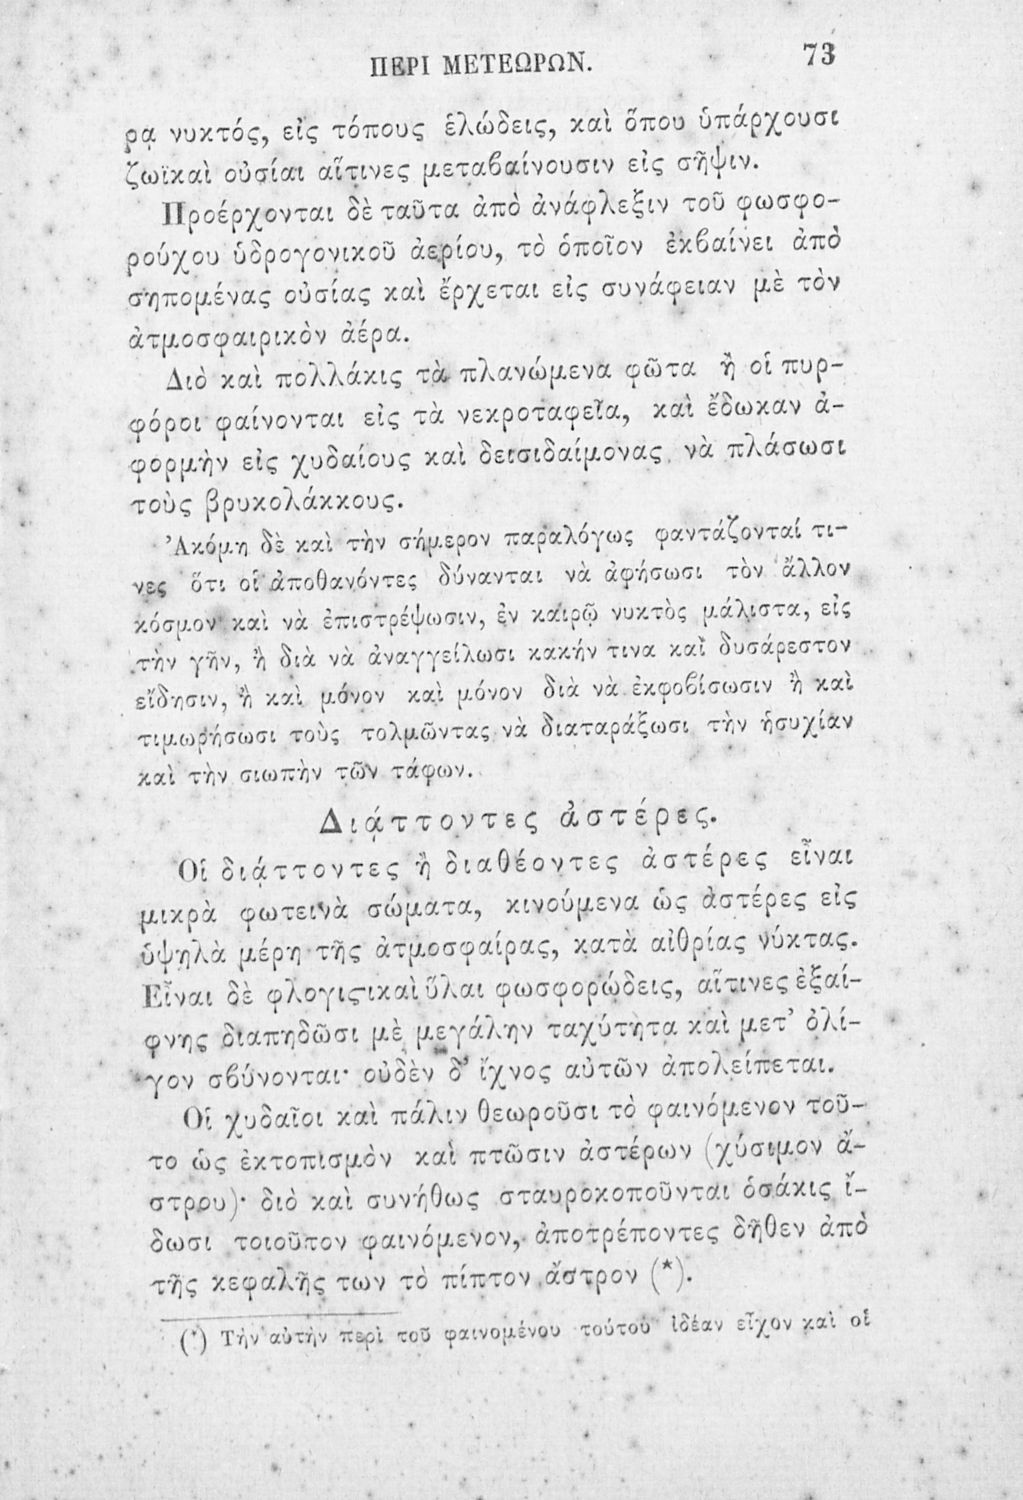 ΠΕΡΙ ΜΕΤΕΩΡΩΝ. 73
ρᾳ νυκτός, εἰς τόπους ἑλώδεις, καὶ ὅπου ὑπάρχουσι
ζωϊκαὶ οὐσίαι αἵτινες μεταβαίνουσιν εἰς σῆψιν.
Προέρχονται δὲ ταῦτα ἀπὸ ἀνάφλεξιν τοῦ φωσφο-
ρούχου ὑδρογονικοῦ ἀερίου, τὸ ὁποῖον ἐκβαίνει ἀπὸ
σηπομένας οὐσίας καὶ ἔρχεται εἰς συνάφειαν μὲ τὸν
ἀτμοσφαιρικὸν ἀέρα.
Διὸ καὶ πολλάκις τὰ πλανώμενα φῶτα ἢ οἱ πυρ-
φόροι φαίνονται εἰς τὰ νεκροταφεῖα, καὶ ἔδωκαν ἀ-
φορμὴν εἰς χυδαίους καὶ δεισιδαίμονας νὰ πλάσωσι
τοὺς βρυκολάκκους.
Ἀκόμη δὲ καὶ τὴν σήμερον παραλόγως φαντάζονταί τι-
νες ὅτι οἱ ἀποθανόντες δύνανται νὰ ἀφήσωσι τὸν ἄλλον
κόσμον καὶ νὰ ἐπιστρέψωσιν, ἐν καιρῷ νυκτὸς μάλιστα, εἰς
τὴν γῆν, ἢ διὰ νὰ ἀναγγείλωσι κακήν τινα καὶ δυσάρεστον
εἴδησιν, ἢ καὶ μόνον καὶ μόνον διὰ νὰ ἐκφοβίσωσιν ἢ καὶ
τιμωρήσωσι τοὺς τολμῶντας νὰ διαταράξωσι τὴν ἡσυχίαν
καὶ τὴν σιωπὴν τῶν τάφων.
Διᾴττοντες ἀστέρες.
Οἱ διᾴττοντες ἢ διαθέοντες ἀστέρες εἶναι
μικρὰ φωτεινὰ σώματα, κινούμενα ὡς ἀστέρες εἰς
ὑψηλὰ μέρη τῆς ἀτμοσφαίρας, κατὰ αἰθρίας νύκτας.
Εἶναι δὲ φλογιϛικαὶ ὗλαι φωσφορώδεις, αἵτινες ἐξαί-
φνης διαπηδῶσι μὲ μεγάλην ταχύτητα καὶ μετ’ ὀλί-
γον σβύνονται· οὐδὲν δ’ ἴχνος αὐτῶν ἀπολείπεται.
Οἱ χυδαῖοι καὶ πάλιν θεωροῦσι τὸ φαινόμενον τοῦ-
το ὡς ἐκτοπισμὸν καὶ πτῶσιν ἀστέρων (χύσιμον ἄ-
στρου)· διὸ καὶ συνήθως σταυροκοποῦνται ὁσάκις ἴ-
δωσι τοιοῦτον φαινόμενον, ἀποτρέποντες δῆθεν ἀπὸ
τῆς κεφαλῆς των τὸ πίπτον ἄστρον (*).
(*) Τὴν αὐτὴν περὶ τοῦ φαινομένου τούτου ἰδέαν εἶχον καὶ οἱ